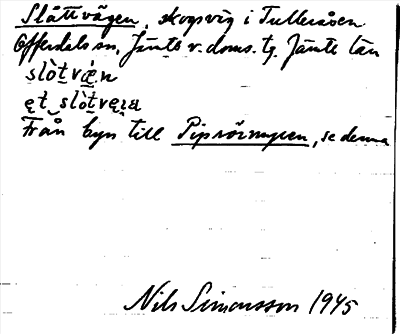 Slåttvägen, skogsväg i Tulleråsen
Offerdals sn, Jämts v. doms. tg. Jämte län
slòtvæ̀n
et slòtveࣹra
Från byn till Piprörmyren, se denna
Nils Simonsson 1945